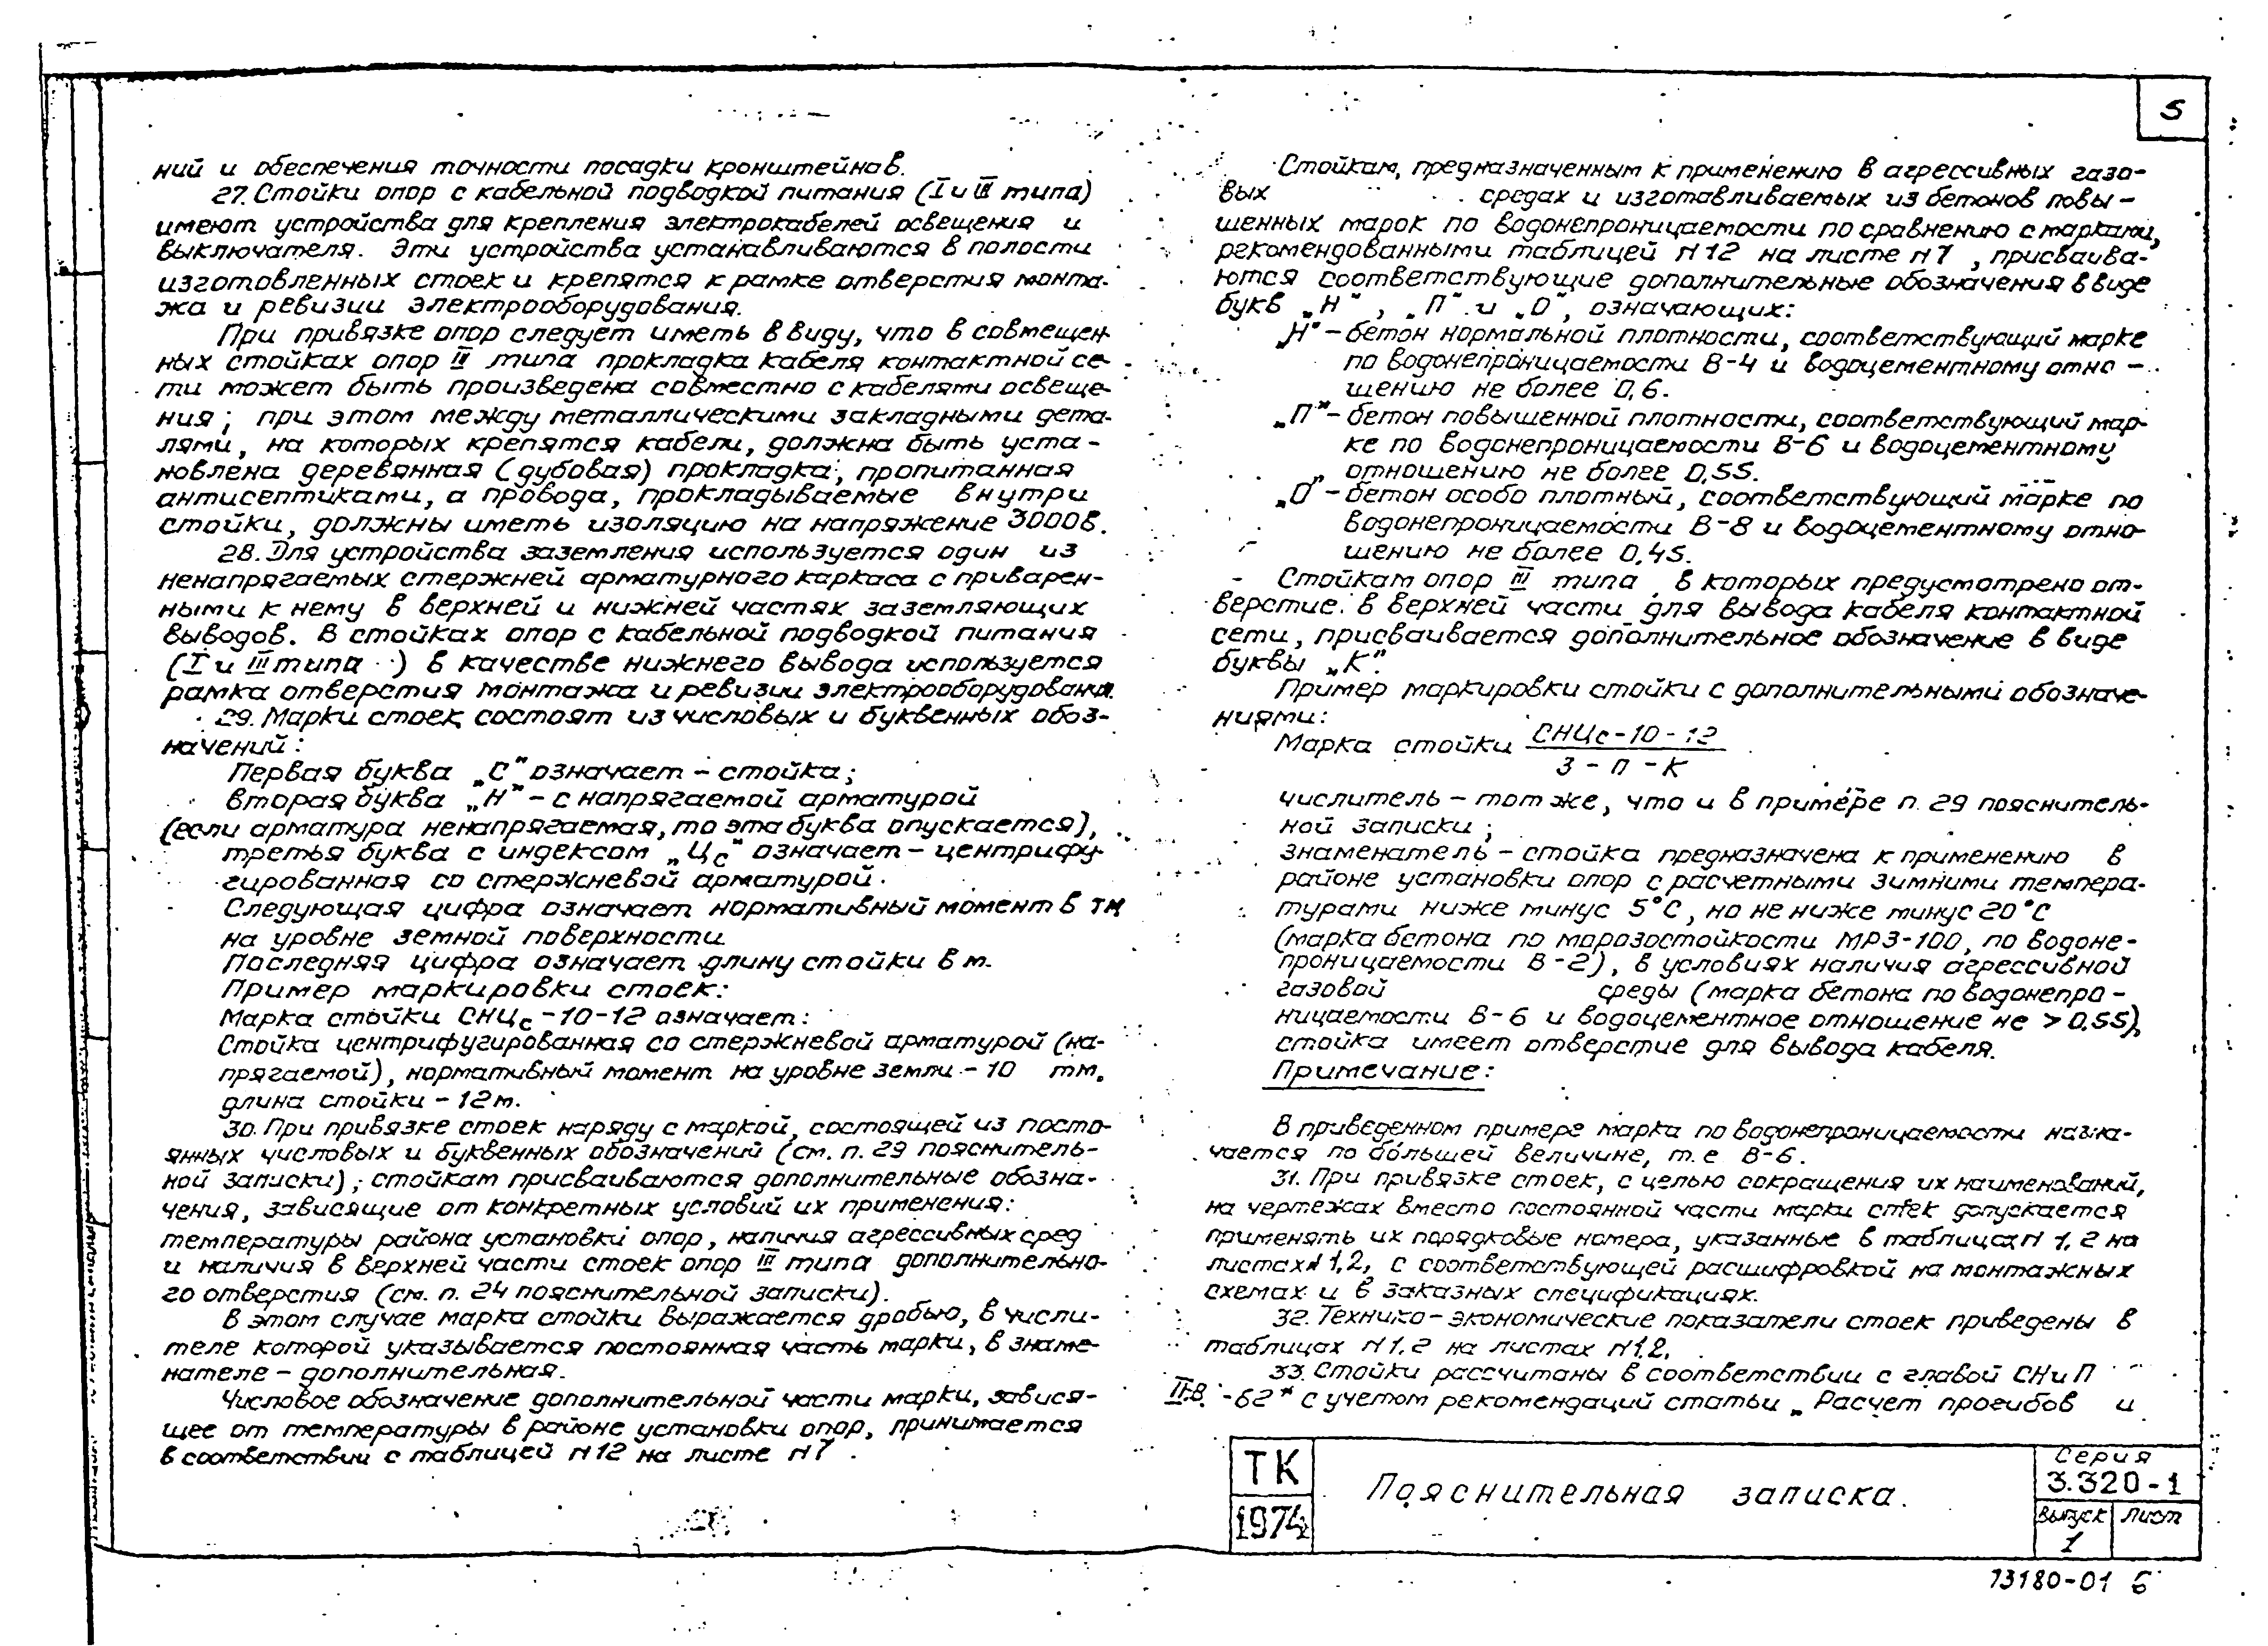 5
ний и обеспечения точности посадки кронштейнов.
27. Стойки опор с кабельной подводкой питания (I и III типа)
имеют устройства для крепления электрокабелей освещения и
выключателя. Эти устройства устанавливаются в полости
изготовленных стоек и крепятся к рамке отверстия монта-
жа и ревизии электрооборудования.
При привязке опор следует иметь ввиду, что в совмещен-
ных стойках опор III типа прокладка кабеля контактной се-
ти может быть произведена совместно с кабелями освеще-
ния; при этом между металлическими закладными дета-
лями, на которых крепятся кабели, должна быть уста-
новлена деревянная (дубовая) прокладка, пропитанная
антисептиками, а провода, прокладываемые внутри
стойки, должны иметь изоляцию на напряжение 3000в.
28. Для устройства заземления используется один из
ненапрягаемых стержней арматурного каркаса с приварен-
ными к нему в верхней и нижней частях заземляющих
выводов. В стойках опор с кабельной подводкой питания
(I и III типа ) в качестве нижнего вывода используется
рамка отверстия монтажа и ревизии электрооборудования.
29. Марки стоек состоят из числовых и буквенных обоз-
начений:
Первая буква „С" означает - стойка;
вторая буква „Н" - с напрягаемой арматурой
(если арматура ненапрягаемая, то эта буква опускается),
третья буква с индексом „Цс" означает - центрифу-
гированная со стержневой арматурой.
Следующая цифра означает нормативный момент в тм
на уровне земной поверхности.
Последняя цифра означает длину стойки в м.
Пример маркировки стоек:
Марка стойки СНЦс-10-12 означает:
Стойка центрифугированная со стержневой арматурой (на-
прягаемой), нормативный момент на уровне земли - 10 тм,
длина стойки - 12м.
30. При привязке стоек наряду с маркой, состоящей из посто-
янных числовых и буквенных обозначений (см. п. 29 пояснитель-
ной записки), стойкам присваиваются дополнительные обозна-
чения, зависящие от конкретных условий их применения:
температуры района установки опор, наличия агрессивных сред
и наличия в верхней части стоек опор III типа дополнительно-
го отверстия (см. п. 24 пояснительной записки).
В этом случае марка стойки выражается дробью, в числи-
теле которой указывается постоянная часть марки, в знаме-
нателе - дополнительная.
Числовое обозначение дополнительной части марки, завися-
щее от температуры в районе установки опор, принимается
в соответствии с таблицей N12 на листе N7 .
Стойкам, предназначенным к применению в агрессивных газо-
вых средах и изготавливаемых из бетонов повы-
шенных марок по водонепроницаемости по сравнению с марками,
рекомендованными таблицей N12 на листе N7 , присваива-
ются соответствующие дополнительные обозначения в виде
букв „Н", „П" и „О", означающих:
„Н" - бетон нормальной плотности, соответствующий марке
по водонепроницаемости В-4 и водоцементному отно-
шению не более 0,6.
„П" - бетон повышенной плотности, соответствующий мар-
ке по водонепроницаемости В-6 и водоцементному
отношению не более 0,55.
„О" - бетон особо плотный, соответствующий марке по
водонепроницаемости В-8 и водоцементному отно-
шению не более 0,45.
Стойкам опор III типа, в которых предусмотрено от-
верстие в верхней части для вывода кабеля контактной
сети, присваивается дополнительное обозначение в виде
буквы „К".
Пример маркировки стойки с дополнительными обозначе-
ниями:
Марка стойки СНЦс-10-12
3 - П - К
числитель - тот же, что и в примере п. 29 пояснитель-
ной записки;
знаменатель - стойка предназначена к применению в
районе установки опор с расчетными зимними темпера-
турами ниже минус 5°С, но не ниже минус 20°С
(марка бетона по морозостойкости МРЗ-100, по водоне-
проницаемости В-2), в условиях наличия агрессивной
газовой среды (марка бетона по водонепро-
ницаемости В-6 и водоцементное отношение не > 0,55),
стойка имеет отверстие для вывода кабеля.
Примечание:
В приведенном примере марка по водонепроницаемости назна-
чается по большей величине, т.е В-6.
31. При привязке стоек, с целью сокращения их наименований,
на чертежах вместо постоянной части марки стоек допускается
применять их порядковые номера, указанные в таблицах N 1, 2 на
листах N 1,2, с соответствующей расшифровкой на монтажных
схемах и в заказных спецификациях.
32. Технико-экономические показатели стоек приведены в
таблицах N1,2 на листах N1,2.
33. Стойки рассчитаны в соответствии с главой СНиП
II-В. -62* с учетом рекомендаций статьи „Расчет прогибов и
ТК
1974
Пояснительная записка.
Серия
3.320-1
выпуск
1
лист
13180-01 6